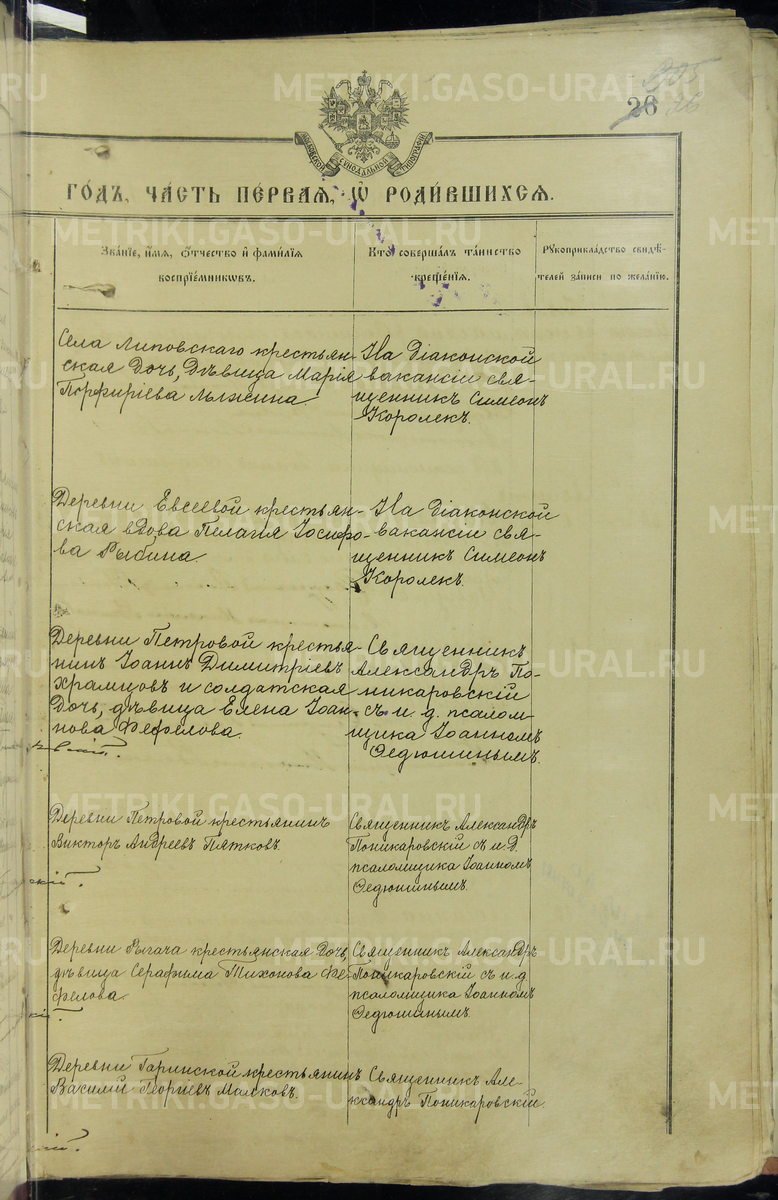 205
26 26
МОСКОВСКОЙ СѴНОДАЛЬНОЙ ТИПОГРАФІИ
ГО́ДЪ, ЧА́СТЬ ПЕ́РВАѦ, Ѽ РОДИ́ВШИХСѦ.
Зва́нїе, и́мѧ, ѻ́тчество и҆ фами́лїѧ
воспрїе́мникѡвъ.
Кто̀ соверша́лъ та́инство
креще́нїѧ.
Рꙋкоприкла́дство свидѣ́-
телей за́писи по жела́нїю.
Села Липовскаго крестьян-
ская дочь, дѣвица Марія
Порфиріева Лыжина.
На діаконской
вакансіи свя-
щенникъ Симеонъ
Королекъ.
Деревни Евсеевой крестьян-
ская вдова Пелагія Іосифо-
ва Рыбина.
На діаконской
вакансіи свя-
щенникъ Симеонъ
Королекъ.
Деревни Петровой крестья-
нинъ Іоаннъ Димитріевъ
Храмцовъ и солдатская
дочь, дѣвица Елена Іоан-
нова Фефелова.
Священникъ
Александръ По-
никаровскій
съ и. д. псалом-
щика Іоанномъ
Ѳедюшинымъ.
Деревни Петровой крестьянинъ
Викторъ Андреевъ Пятковъ.
Священникъ Александръ
Поникаровскій съ и. д.
псаломщика Іоанномъ
Ѳедюшинымъ.
Деревни Рычача крестьянская дочь,
дѣвица Серафима Тихонова Фе-
фелова.
Священникъ Александръ
Поникаровскій съ и. д.
псаломщика Іоанномъ
Ѳедюшинымъ.
Деревни Гаринской крестьянинъ
Василій Георгіевъ Малковъ.
Священникъ Але-
ксандръ Поникаровскій.
METRIKI.GASO-URAL.RU